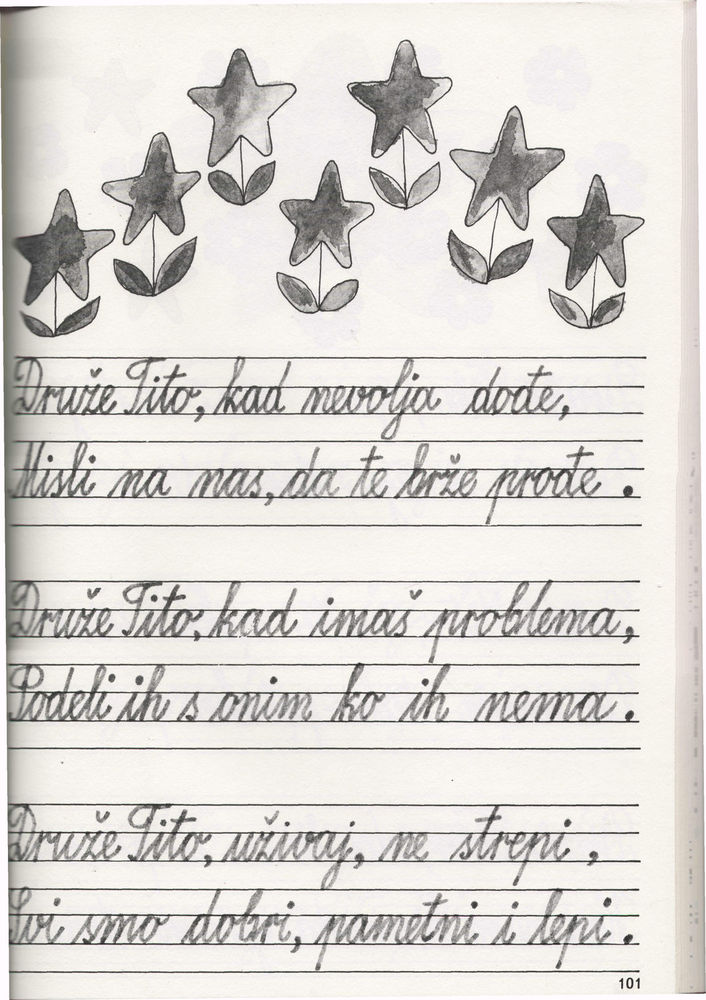 Druže Tito, kad nevolja dođe,
Misli na nas, da te brže prođe.
Druže Tito, kad imaš problema,
Podeli ih s onim ko ih nema.
Druže Tito, uživaj, ne strepi,
Svi smo dobri, pametni i lepi.
101